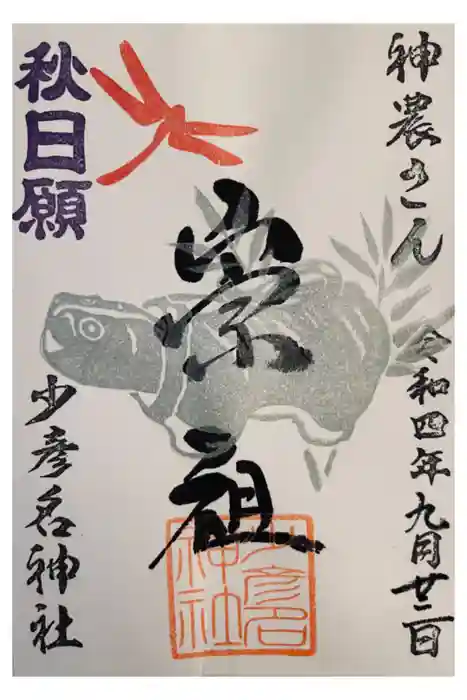 神農さん
令和四年九月廿二日
崇祖
秋日願
少彦名神社
少彦名神社